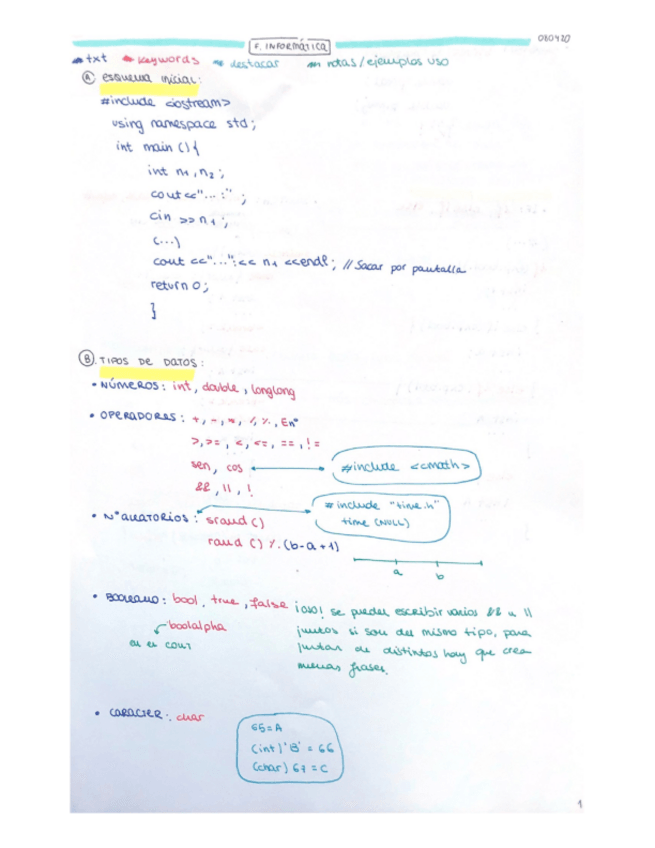 F. INFORMÁTICA
080420
txt keywords destacar notas/ejemplos uso
A esquema inicial:
#include <iostream>
using namespace std;
int main () {
int n1, n2;
cout<<"...:" ;
cin >> n1 ;
(...)
cout <<"...":<< n1 <<endl; // Sacar por pantalla
return 0;
}
B. TIPOS DE DATOS:
• NÚMEROS: int, double, longlong
• OPERADORES: +, -, *, /, %, En°
>, >=, <, <=, ==, !=
sen, cos
#include <cmath>
&&, ||, !
#include "time.h"
• Nº ALEATORIOS: srand ()
time (NULL)
rand () % (b-a+1)
a b
• BOOLEANO: bool, true, false
boolalpha
en el cout
¡OJO! se puedes escribir varios && u ||
juntos si son del mismo tipo, para
juntar de distintos hay que crear
nuevas frases.
• CARACTER: char
65=A
(int)'B' = 66
(char) 67 = C
1